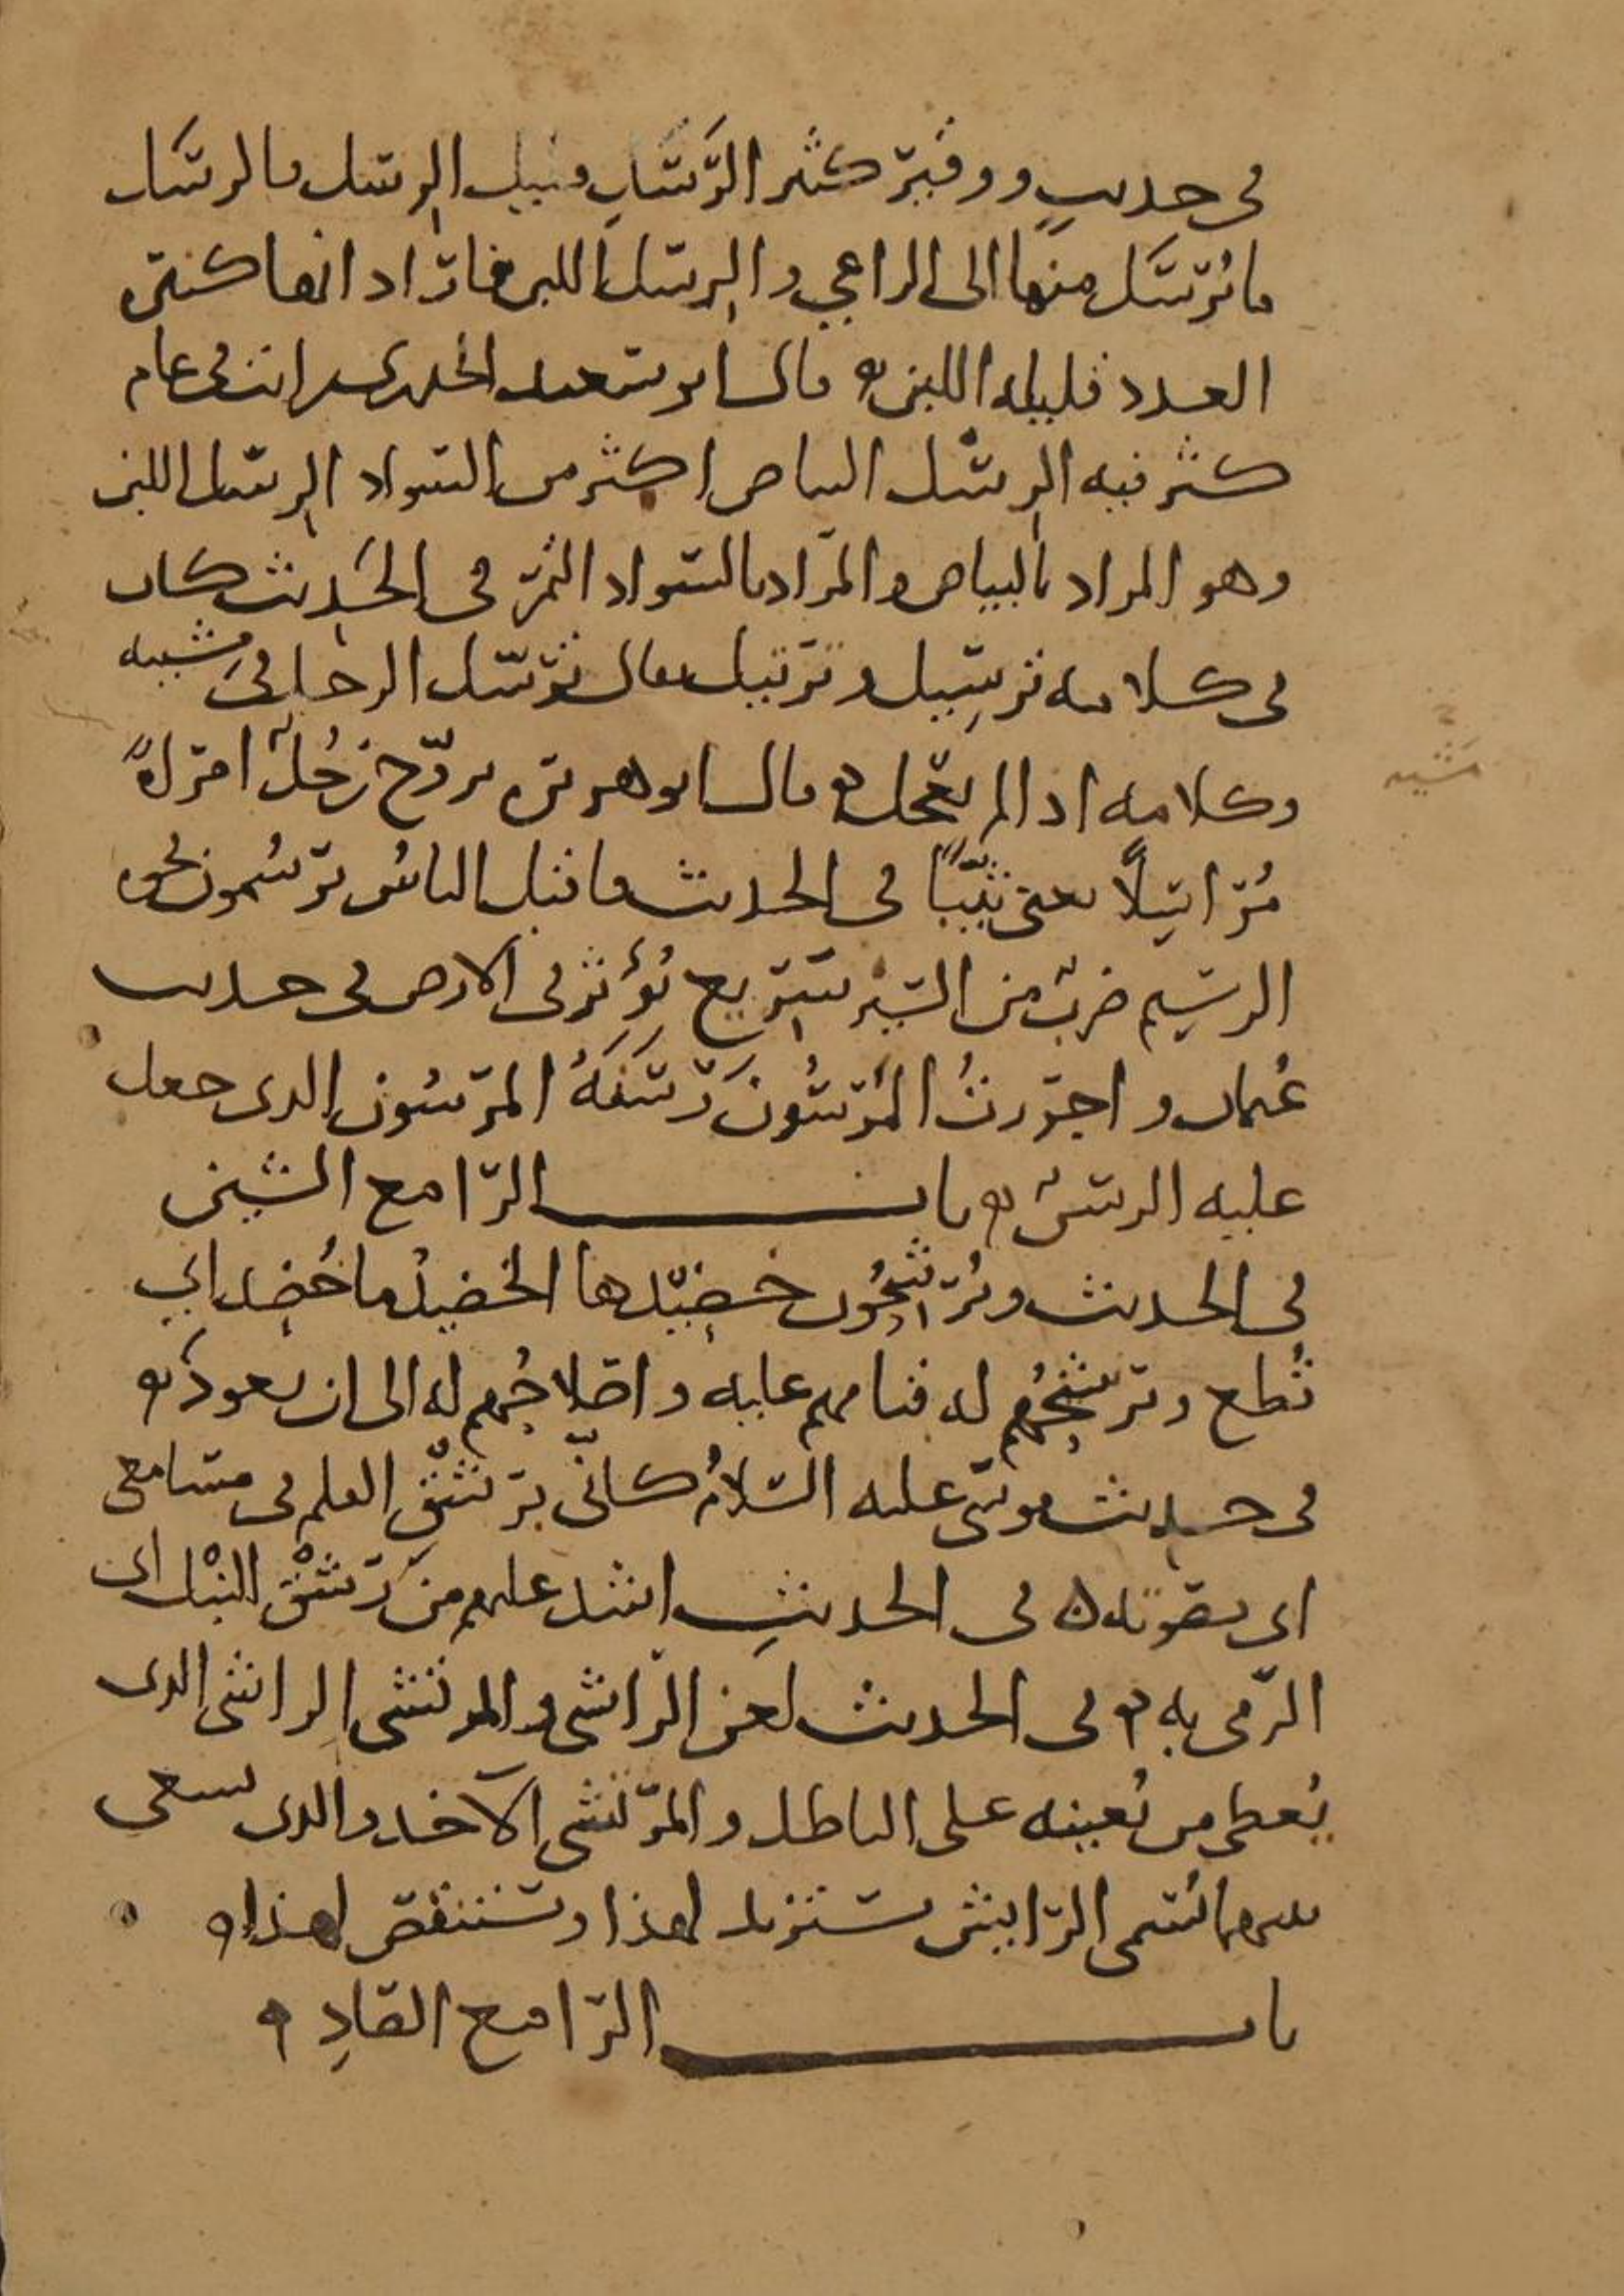 في حديث ووقير كثير الرَّسَلِ قليل الرِسل فالرسَل
ما يُرسَل منها الى الراعي والرِسل اللبن فاراد انها كثيرة
العدد قليلة اللبن ۞ قال ابو سعيد الخدري رايت في عام
كثر فيه الرِسْل البياض اكثر من السواد الرِسل اللبن
وهو المراد بالبياض والمراد بالسواد التمر في الحديث كان
في كلامه ترسِيل وترتيل يقال ترسّل الرجل في مشيه
وكلامه اذا لم يعجل ۞ قال ابو هريرة تزوّج رَجُلٌ امرأةً
مُراسِلًا يعني ثيّبًا في الحديث فاقبل الناسُ يرسُمون نحوه
الرسِيم ضربٌ من السَّيْر سَرِيع يُؤَثِّر في الارض في حديث
عثمان واجررتُ المَرْسُونَ رَسَنَهُ المرسُون الذي جعل
عليه الرسنُ ۞ باب الراء مع الشين
في الحديث ويُرَشِّحُون خضِيْدها الخضيدُ ما خُضِد اي
قُطع وترشيحُهُم له قيامهم عليه واصلاحُهم له الى ان يعود ۞
في حديث موسى عليه السلامُ كانّي برَشْقِ القلم في مسامعي
اي بصوته ۞ في الحديثِ اشد عليهم من رَشْقِ النبْل اي
الرمي به ۞ في الحديث لعن الراشي والمرتشي الراشي الذي
يُعطي من يُعينه على الباطل والمرتشي الآخذ والذي يسعى
بينهما يُسمى الرايش يستزيد لهذا ويستنقص لهذا ۞
باب الراء مع الصادِ ۞
مَشْيه